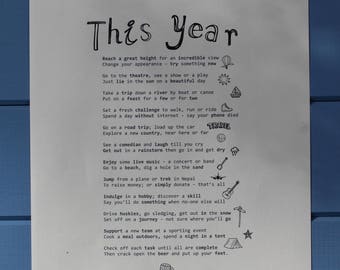 This Year
Reach a great height for an incredible view
Change your appearance - try something new
Go to the theatre, see a show or a play
Just lie in the sun on a beautiful day
Take a trip down a river by boat or canoe
Put on a feast for a few or for two
Set a fresh challenge to walk, run or ride
Spend a day without internet - say your phone died
Go on a road trip; load up the car
Explore a new country, near here or far
See a comedian and laugh till you cry
Get out in a rainstorm then go in and get dry
Enjoy some live music - a concert or band
Go to a beach, dig a hole in the sand
Jump from a plane or trek in Nepal
To raise money; or simply donate - that's all
Indulge in a hobby; discover a skill
Say you'll do something when no-one else will
Drive huskies, go sledging, get out in the snow
Set off on a journey - not sure where you'll go
Support a new team at a sporting event
Cook a meal outdoors, spend a night in a tent
Check off each task until all are complete
Then crack open the beer and put up your feet.